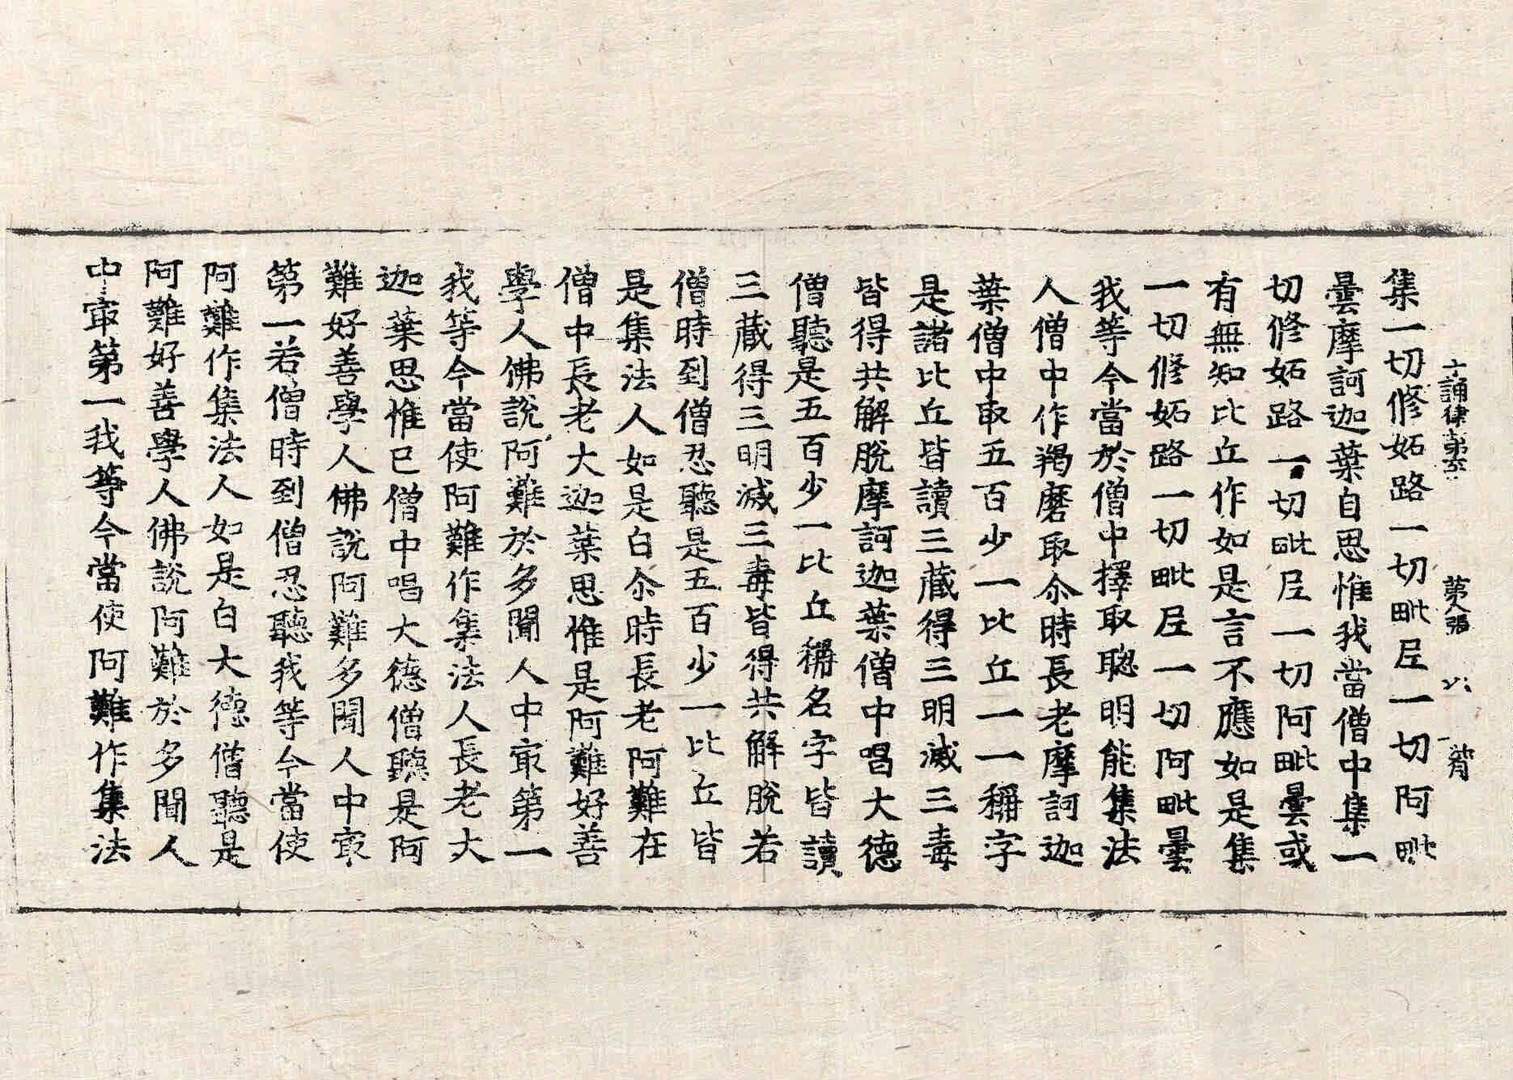 十誦律第 第八張
集一切修妬路一切毗𡰱一切阿毗
曇摩訶迦葉自思惟我當僧中集一
切修妬路一切毗𡰱一切阿毗曇或
有無知比丘作如是言不應如是集
一切修妬路一切毗𡰱一切阿毗曇
我等今當於僧中擇取聰明能集法
人僧中作羯磨取尒時長老摩訶迦
葉僧中取五百少一比丘一一稱字
是諸比丘皆讀三藏得三明滅三毒
皆得共解脫摩訶迦葉僧中唱大德
僧聽是五百少一比丘稱名字皆讀
三藏得三明滅三毒皆得共解脫若
僧時到僧忍聽是五百少一比丘皆
是集法人如是白尒時長老阿難在
僧中長老大迦葉思惟是阿難好善
學人佛說阿難於多聞人中㝡第一
我等今當使阿難作集法人長老大
迦葉思惟已僧中唱大德僧聽是阿
難好善學人佛說阿難多聞人中㝡
第一若僧時到僧忍聽我等今當使
阿難作集法人如是白大德僧聽是
阿難好善學人佛說阿難於多聞人
中㝡第一我等今當使阿難作集法